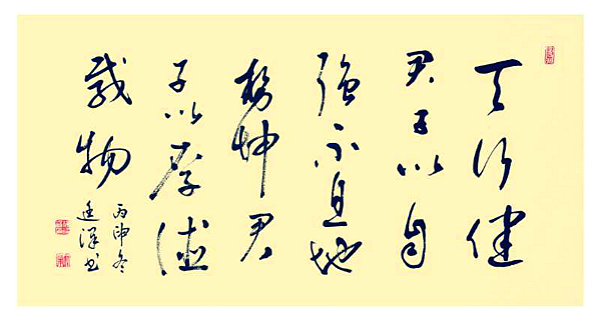 天行健
君子以自
強不息地
勢坤君
子以厚德
載物
丙申冬
书